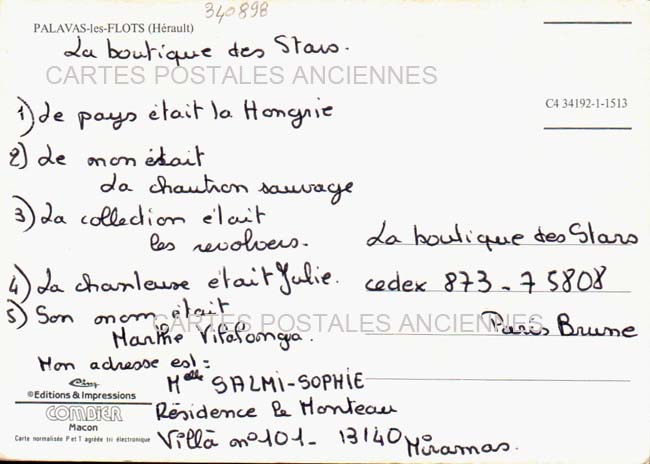 340898
PALAVAS-les-FLOTS (Hérault)
La boutique des Stars.
CARTES POSTALES ANCIENNES
C4 34192-1-1513
1) Le pays était la Hongrie
2) Le mon était
La chautron sauvage
3) La collection était
les revolvers.
4) La chanteuse était Julie.
5) Son nom était
Marthe
Mon adresse est :
Melle SALMI-SOPHIE
Résidence le Monteau
Villà n°101 - 13140 Miramas.
La boutique des Stars
cedex 873 - 75808
Paris Brune
CARTES POSTALES ANCIENNES
©Editions & Impressions
COMBIER
Macon
Carte normalisée P et T agréée tri électronique